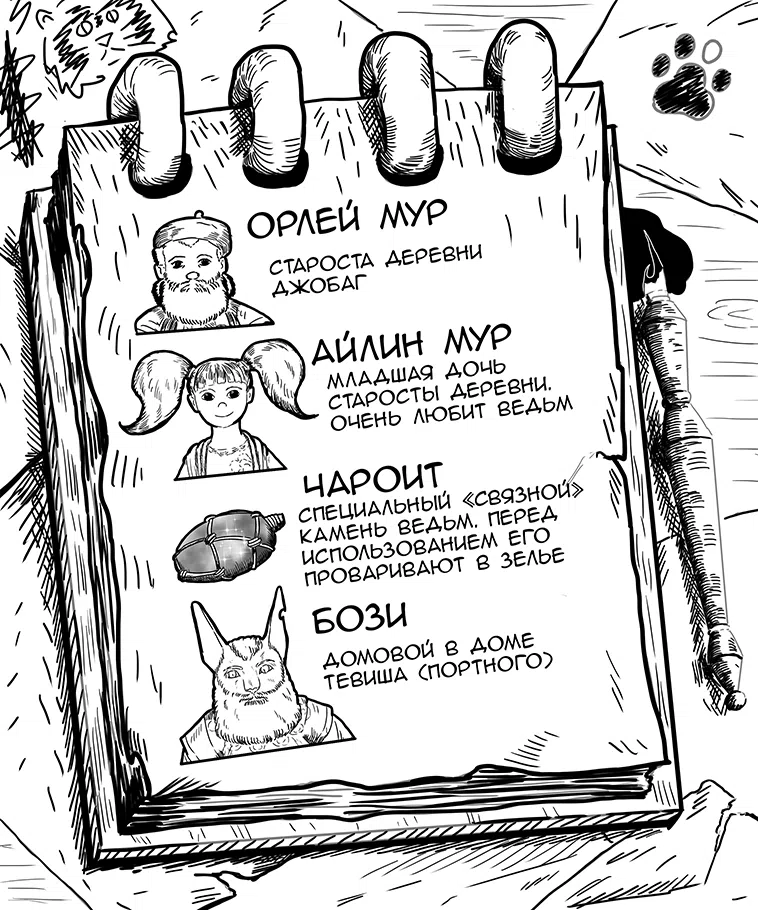 ОРЛЕЙ МУР
СТАРОСТА ДЕРЕВНИ
ДЖОБАГ
АЙЛИН МУР
МЛАДШАЯ ДОЧЬ
СТАРОСТЫ ДЕРЕВНИ.
ОЧЕНЬ ЛЮБИТ ВЕДЬМ
ЧАРОИТ
СПЕЦИАЛЬНЫЙ «СВЯЗНОЙ»
КАМЕНЬ ВЕДЬМ. ПЕРЕД
ИСПОЛЬЗОВАНИЕМ ЕГО
ПРОВАРИВАЮТ В ЗЕЛЬЕ
БОЗИ
ДОМОВОЙ В ДОМЕ
ТЕВИША (ПОРТНОГО)